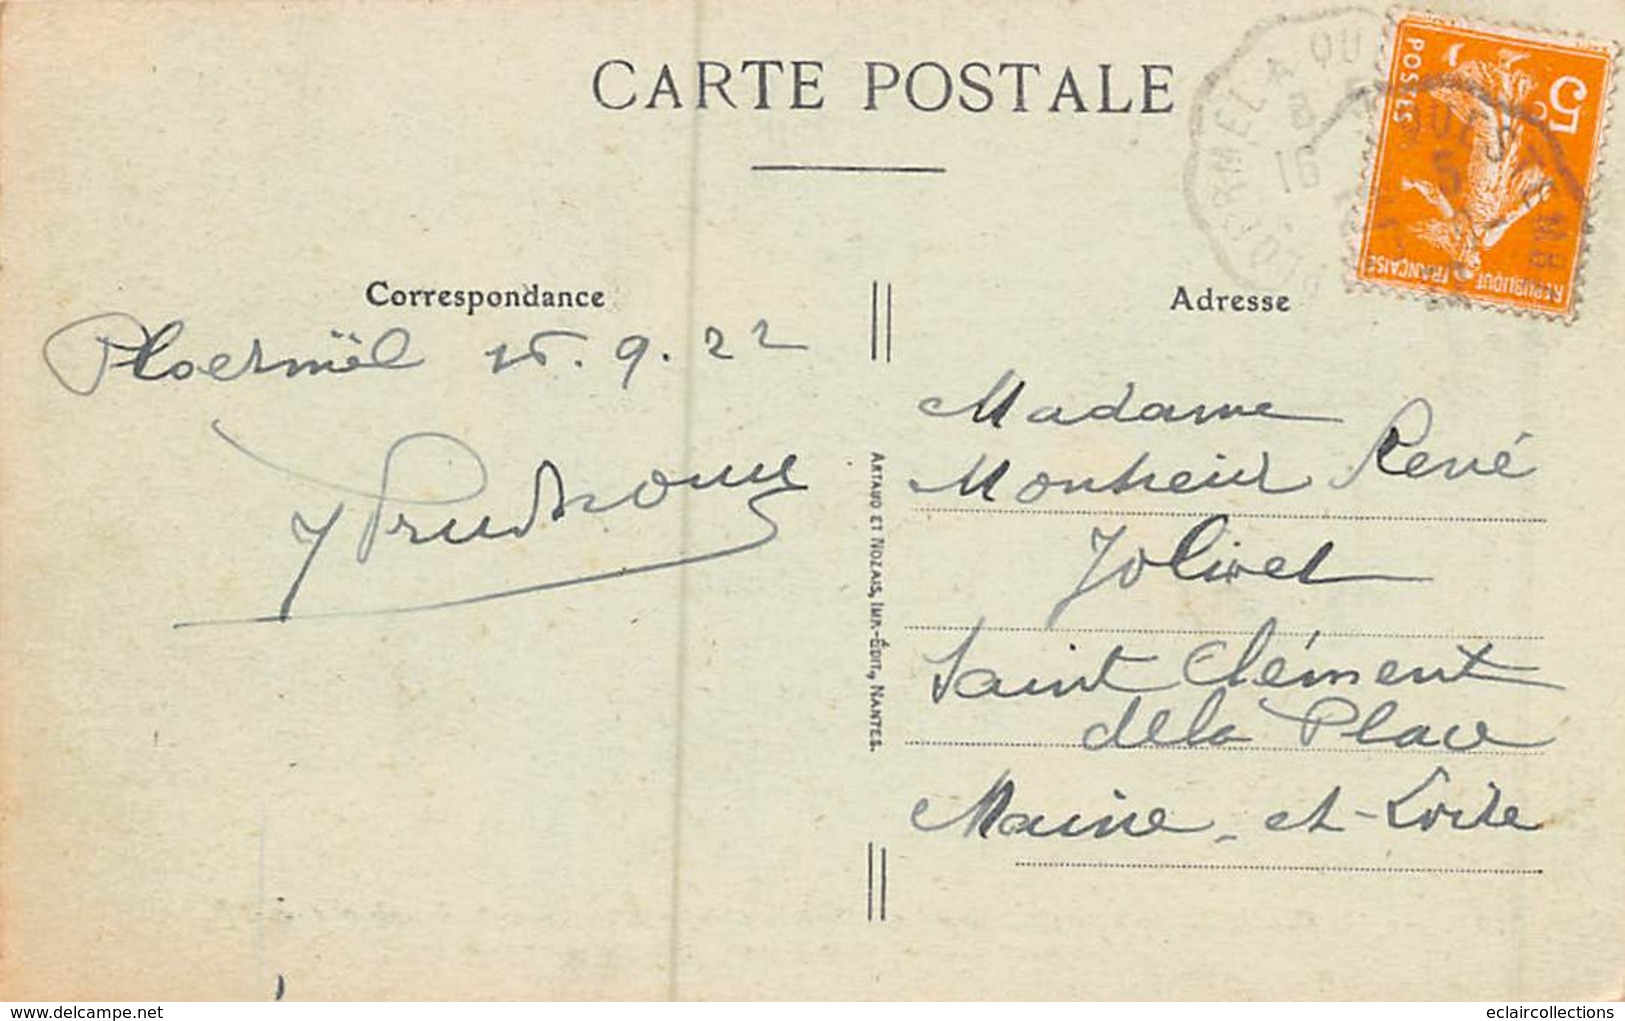 CARTE POSTALE
PLOERMEL A QUESTEMB
5c
POSTES
REPUBLIQUE FRANÇAISE
Correspondance
Ploermël 15.9.22
Adresse
Madame
Monsieur René
Jolivet
Saint Clément
de la Place
Maine-et-Loire
ARTAUD ET NOZAIS, IMP.-ÉDIT., NANTES.
www.delcampe.net
eclaircollections